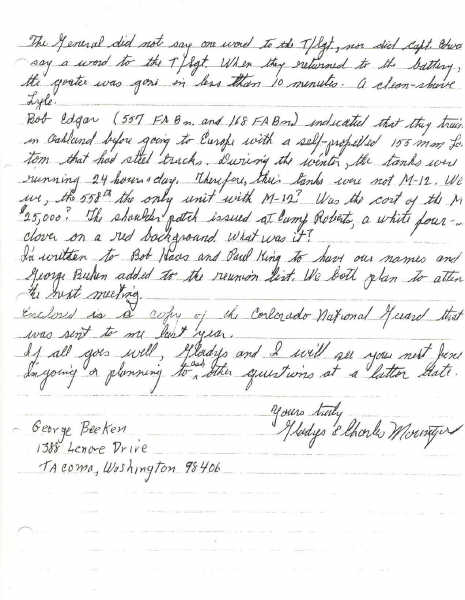 The General did not say one word to the T/Sgt, nor did Capt.
say a word to the T/Sgt. When they returned to the battery,
the goatee was gone in less than 10 minutes. A clean-shave
Lyle.
Bob Edgar (557 FA Bn. and 168 FA Bn.) indicated that they train
in Oakland before going to Europe with a self-propelled 155 mm
tom that had steel tracks. During the winter, the tanks were
running 24 hours a day. Therefore, their tanks were not M-12. We
we, the 558th the only unit with M-12? Was the cost of the M
$25,000? The shoulder patch issued at Camp Robert, a white four-
clover on a red background. What was it?
I'm written to Bob Haas and Paul King to have our names and
George Beeken added to the reunion list. We both plan to atten
the next meeting.
Enclosed is a copy of the Corlorado National Guard that
was sent to me last year.
If all goes well, Gladys and I will see you next June
I'm going or planning to ask other questions at a latter date.
Yours truly
Gladys & Charles
George Beeken
1388 Lenore Drive
TAcoma, Washington 98406